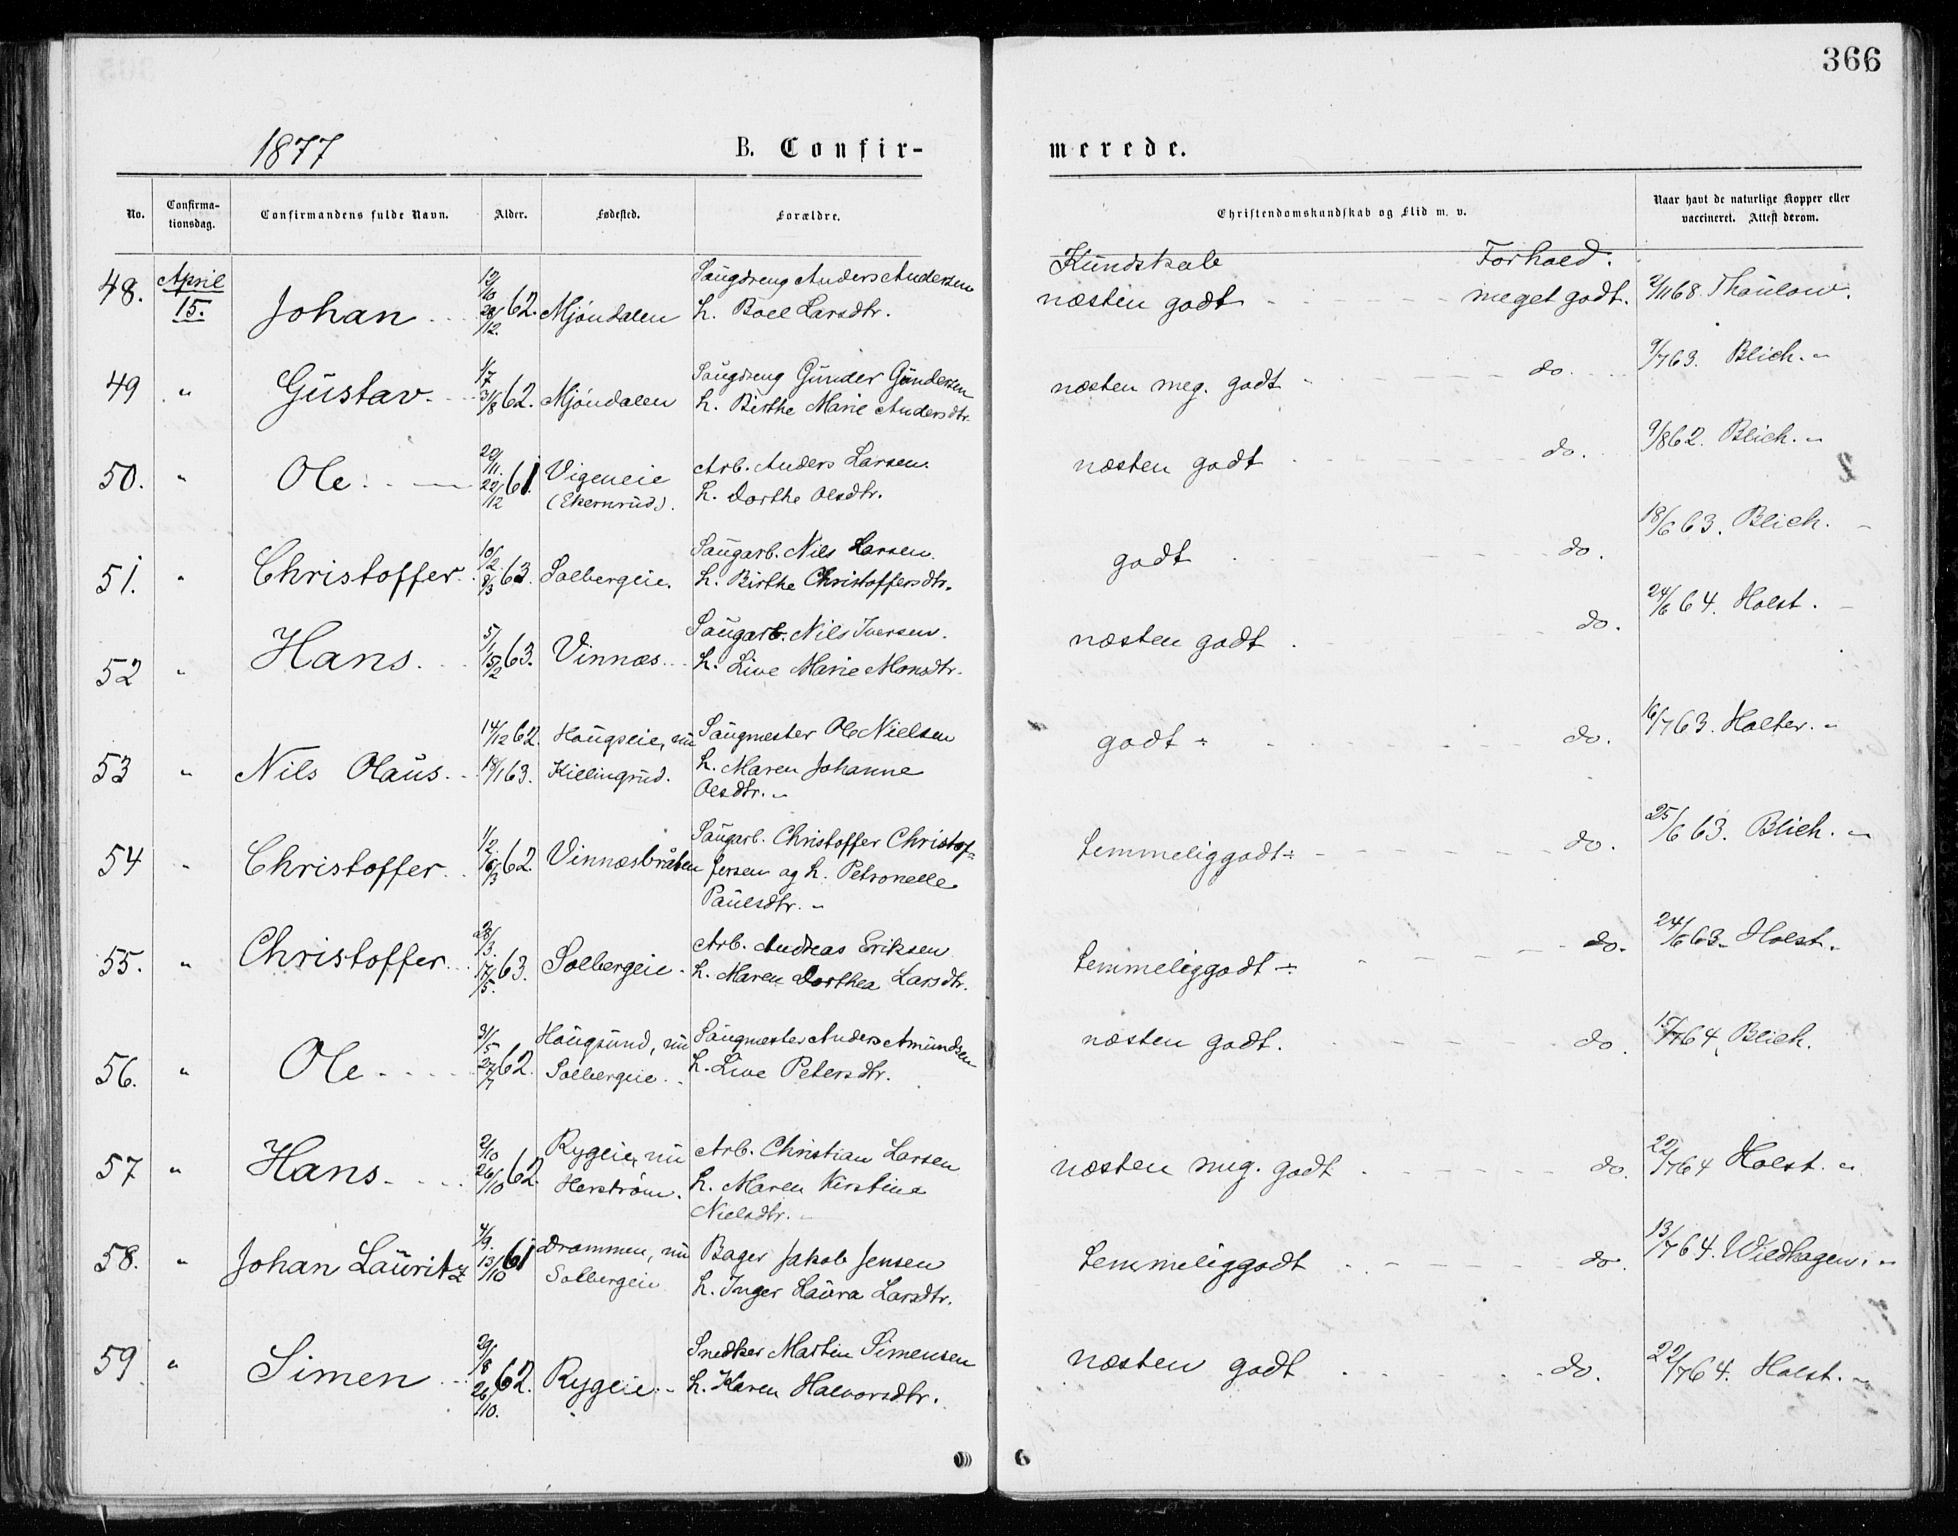 366
1877
B. Confir-
merede.
No.
Confirma-
tionsdag.
Confirmandens fulde Navn.
Alder.
Fødested.
Forældre.
Christendomskundskab og Flid m. v.
Naar havt de naturlige Kopper eller
vaccineret. Attest derom.
Kundskab
Forhold.
48.
April
15.
Johan
12/10
28/12 62.
Mjøndalen
Saugdreng Anders Andersen
h. Boel Larsdtr.
næsten godt
meget godt.
2/11 68. Thaulow.
49
"
Gustav.
1/7
31/8 62.
Mjøndalen
Saugdreng Gunder Gundersen
h. Birthe Marie Andersdtr.
næsten meg. godt
do.
9/7 63. Blich.
50.
"
Ole
20/11.
22/12 61.
Vigeneie
(Ekernrud).
Arb. Anders Larsen.
h. Dorthe Olsdtr.
næsten godt
do.
9/8 62. Blich.
51.
"
Christoffer.
10/2
8/3 63.
Solbergeie.
Saugarb. Nils Larsen.
h. Birthe Christoffersdtr.
godt
do.
18/6 63. Blich.
52
"
Hans.
5/1
15/2 63.
Vinnæs
Saugarb. Nils Iversen.
h. Live Marie Monsdtr.
næsten godt
do.
24/6 64. Holst.
53
"
Nils Olaus.
14/12 62.
18/1 63.
Haugseie, nu
Killingrud.
Saugmester Ole Nielsen
h. Maren Johanne
Olsdtr.
godt ÷
do.
16/7 63. Holter.
54
"
Christoffer.
1/2
16/3 62.
Vinnæsbråten
Saugarb. Christoffer Christof-
fersen og h. Petronelle
Paulsdtr.
temmeliggodt÷
do.
25/6 63. Blich.
55.
"
Christoffer.
28/3.
17/5. 63.
Solbergeie
Arb. Andreas Eriksen
h. Maren Dorthea Larsdtr.
temmeliggodt ÷
do.
24/6 63. Holst.
56.
"
Ole
31/5
27/7 62.
Haugsund, nu
Solbergeie
Saugmester Anders Amundsen
h. Live Petersdtr.
næsten godt.
do.
15/7 64. Blich.
57
"
Hans.
2/10
26/10 62.
Rygeie, nu
Herstrøm.
Arb. Christian Larsen
h. Maren Kirstine
Nielsdtr.
næsten meg. godt
do.
22/7 64 Holst.
58.
"
Johan Lauritz
4/9.
13/10 61
Drammen, nu
Solbergeie
Bager Jakob Jensen
h. Inger Laura Larsdtr.
temmeliggodt
do.
13/7 64. Wildhagen.
59
"
Simen
29/8
26/10. 62.
Rygeie
Snedker Martin Simensen
h. Karen Halvorsdtr.
næsten godt
do.
22/7 64. Holst.